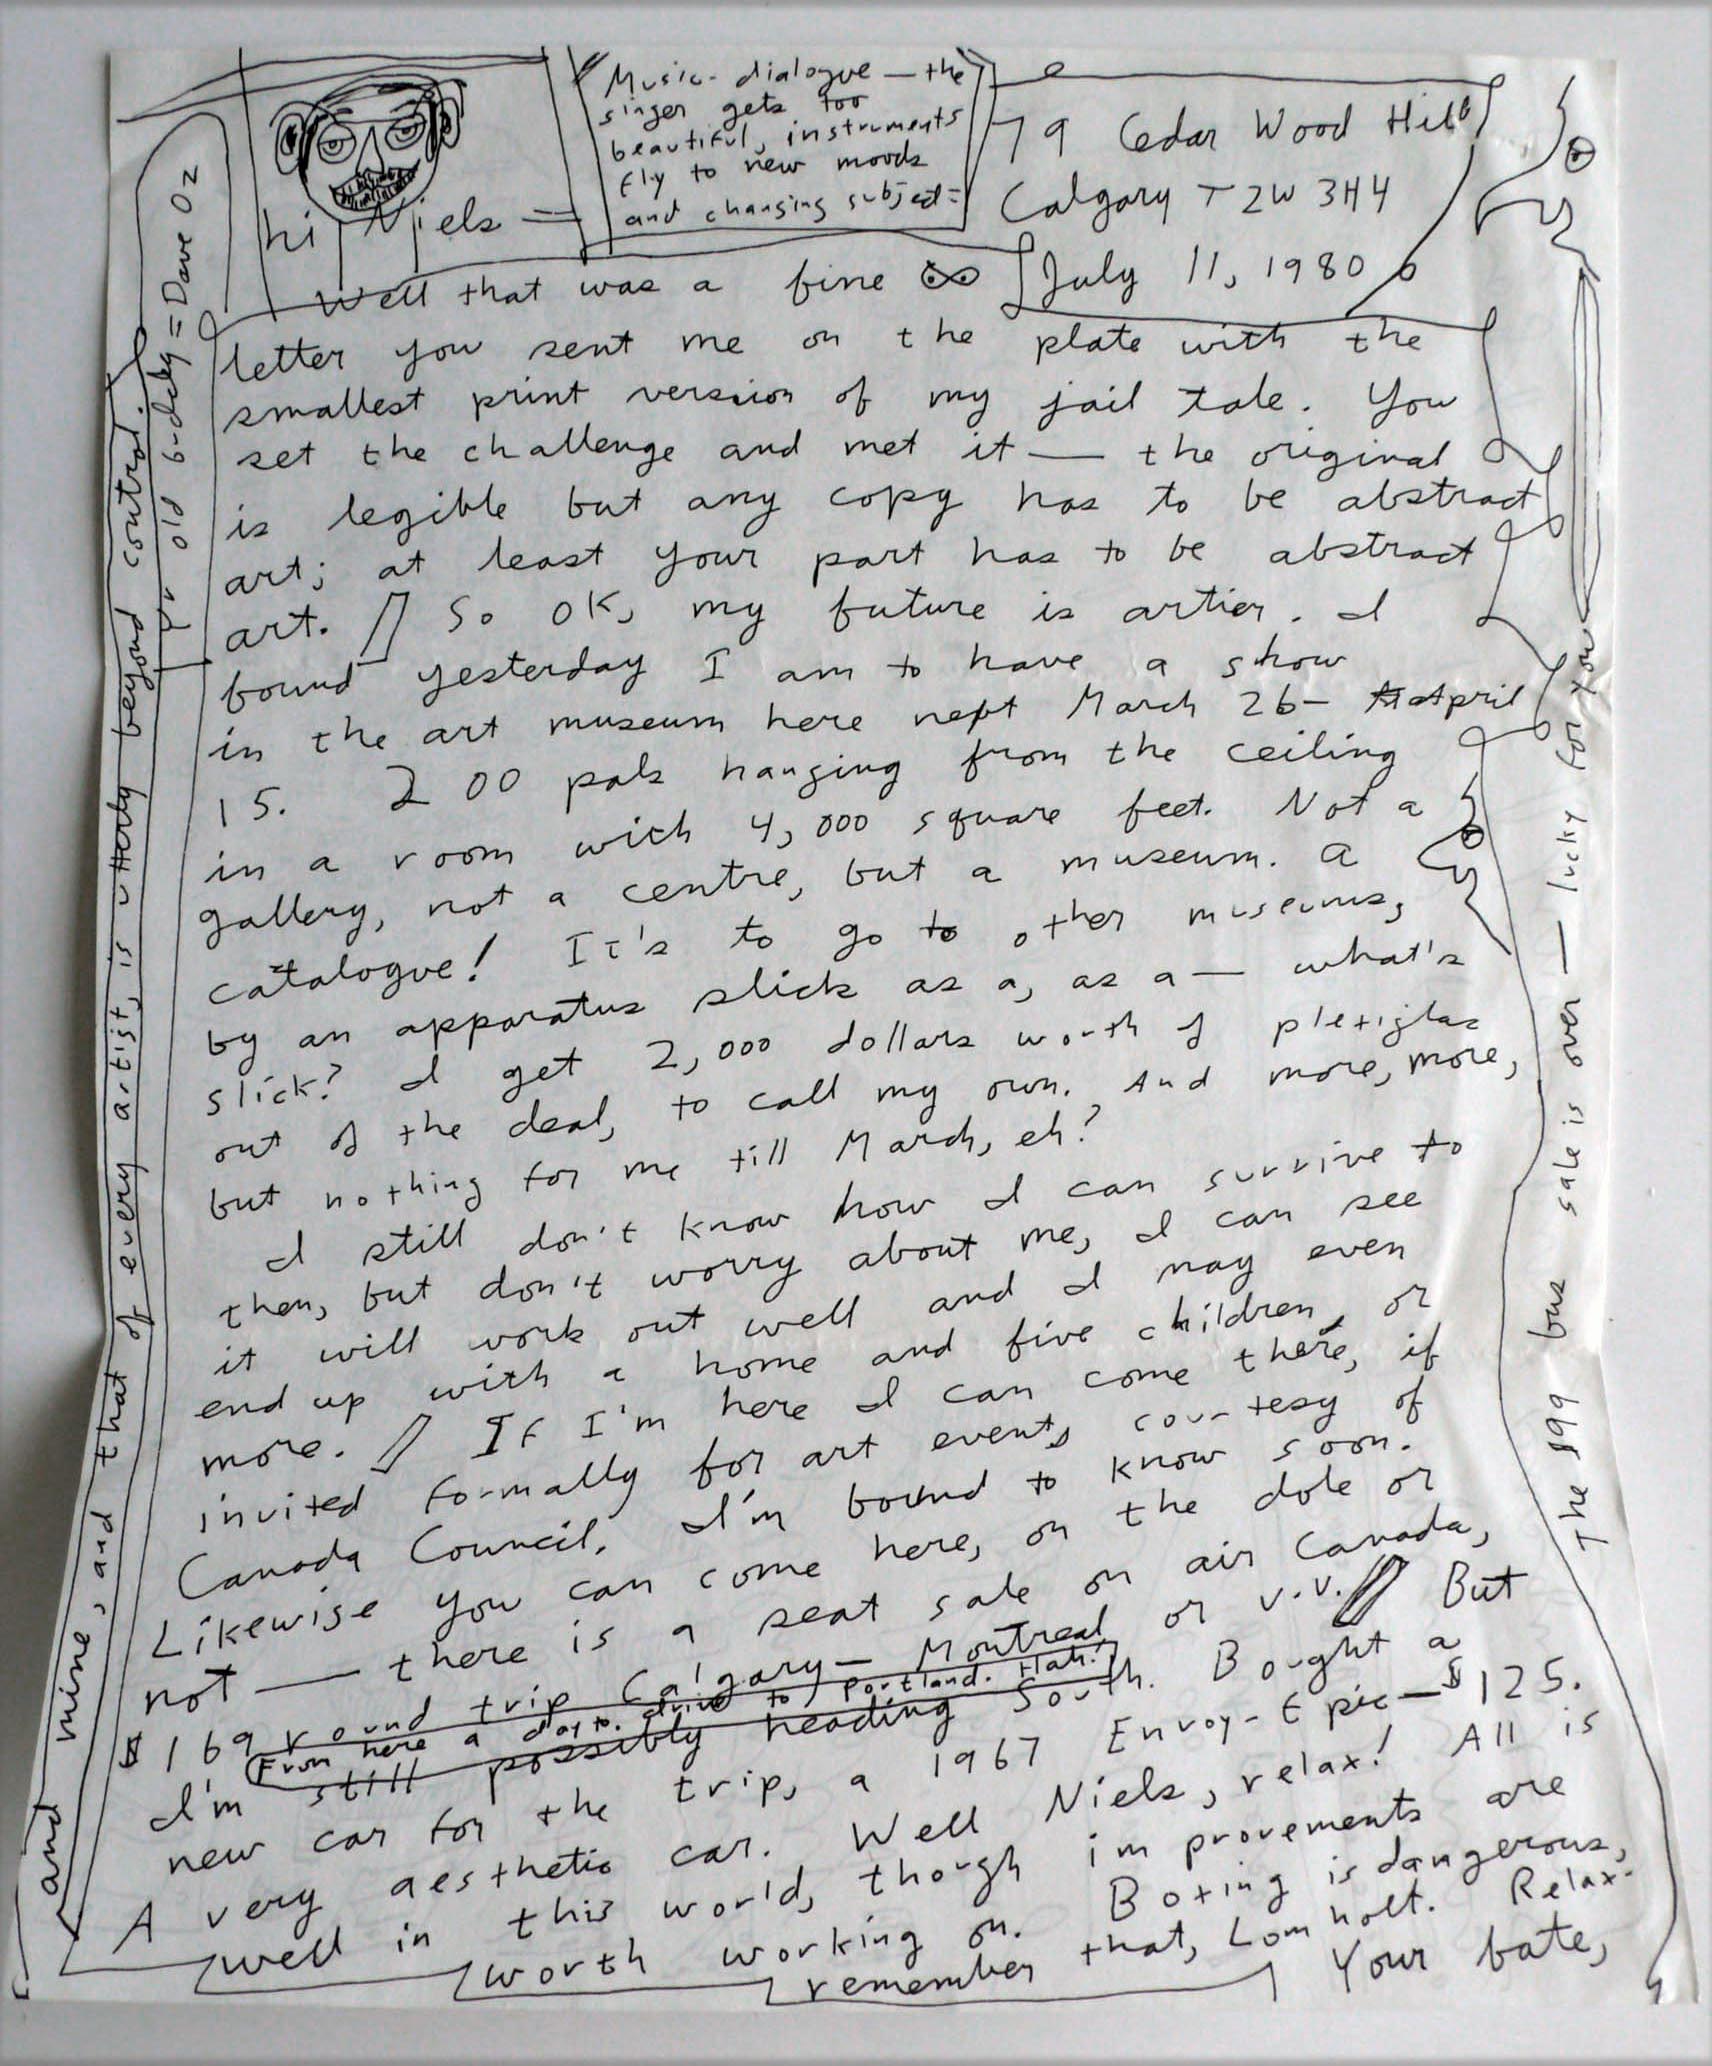 Music-dialogue — the
singer gets too
beautiful, instruments
fly to new moods
and changing subject =
79 Cedar Wood Hill
Calgary T2W 3H4
July 11, 1980
hi Niels =
Well that was a fine
letter you sent me on the plate with the
smallest print version of my jail tale. You
set the challenge and met it — the original
is legible but any copy has to be abstract
art; at least your part has to be abstract
art. // So OK, my future is artier. I
found yesterday I am to have a show
in the art museum here next March 26 - April
15. 200 pals hanging from the ceiling
in a room with 4,000 square feet. Not a
gallery, not a centre, but a museum. A
catalogue! It's to go to other museums,
by an apparatus slick as a, as a — what's
slick? I get 2,000 dollars worth of plexiglas
out of the deal, to call my own. And more, more,
but nothing for me till March, eh?
I still don't know how I can survive to
then, but don't worry about me, I can see
it will work out well and I may even
end up with a home and five children, or
more. // If I'm here I can come there, if
invited formally for art events, courtesy of
Canada Council. I'm bound to know soon.
Likewise you can come here, on the dole or
not — there is a seat sale on air Canada,
$169 round trip Calgary - Montreal or v.v. // But
From here a day to drive to Portland. Hah!
I'm still possibly heading South. Bought a
new car for the trip, a 1967 Envoy-Epic — $125.
A very aesthetic car. Well Niels, relax! All is
well in this world, though improvements are
worth working on. Boxing is dangerous,
remember that, Lomholt. Relax.
Your fate,
and mine, and that of every artist, is utterly beyond control.
yr old buddy = Dave Oz
The $99 bus sale is over — lucky for you